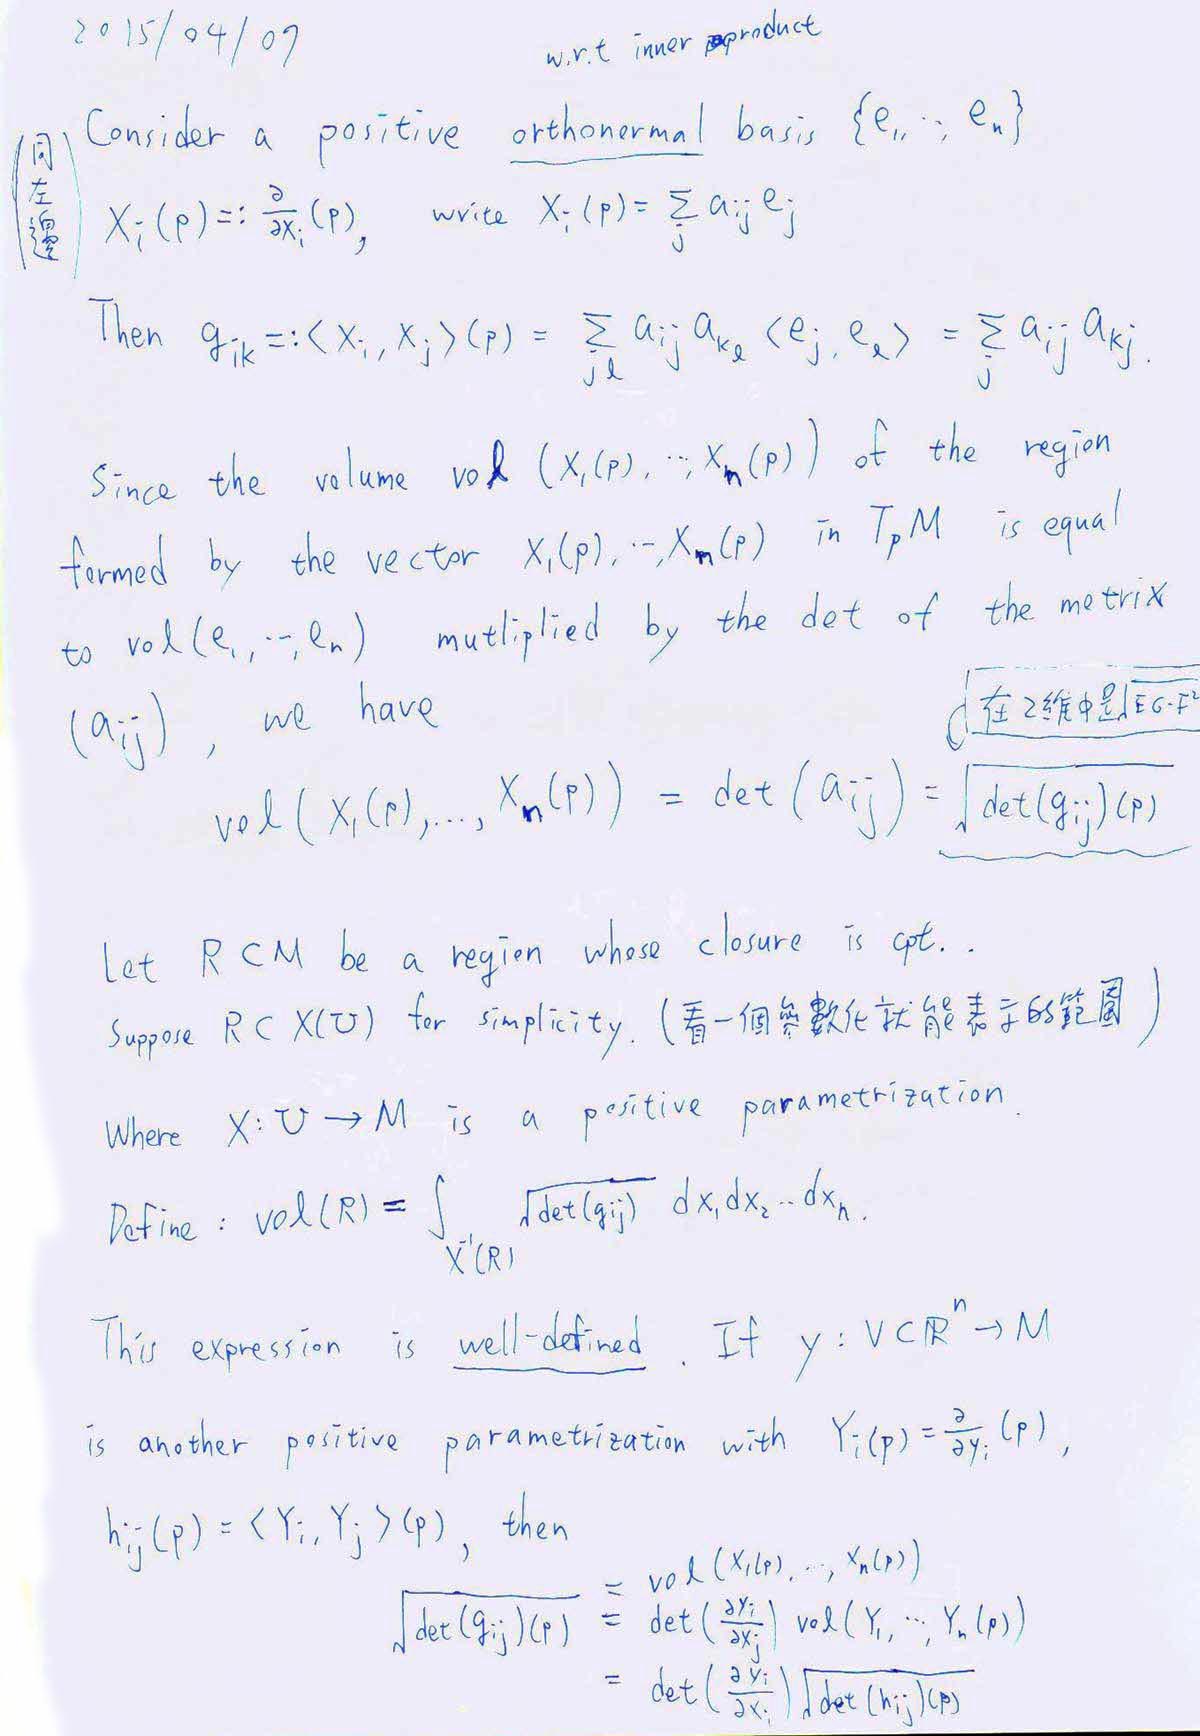 2015/04/09
w.r.t inner product
Consider a positive orthonermal basis {e₁, …, eₙ}
(同左邊)
Xᵢ(p) =: ∂/∂xᵢ (p), write Xᵢ(p) = Σⱼ aᵢⱼ eⱼ
Then gᵢₖ =: <Xᵢ, Xⱼ>(p) = Σⱼₗ aᵢⱼ aₖₗ <eⱼ, eₗ> = Σⱼ aᵢⱼ aₖⱼ.
Since the volume vol (X₁(p), …, Xₙ(p)) of the region
formed by the vector X₁(p), …, Xₙ(p) in TₚM is equal
to vol(e₁, …, eₙ) mutliplied by the det of the metrix
(aᵢⱼ), we have
在2維中是√(EG-F²)
vol(X₁(p), ..., Xₙ(p)) = det(aᵢⱼ) = √(det(gᵢⱼ)(p))
Let R⊂M be a region whose closure is cpt..
Suppose R⊂X(U) for simplicity. (看一個參數化就能表示的範圍)
Where X: U → M is a positive parametrization.
Define: vol(R) = ∫_{X⁻¹(R)} √(det(gᵢⱼ)) dx₁dx₂..dxₙ.
This expression is well-defined. If y: V⊂ℝⁿ → M
is another positive parametrization with Yᵢ(p) = ∂/∂yᵢ (p),
hᵢⱼ(p) = <Yᵢ, Yⱼ>(p), then
= vol(X₁(p), …, Xₙ(p))
√(det(gᵢⱼ)(p)) = det(∂yᵢ/∂xⱼ) vol(Y₁, …, Yₙ(p))
= det(∂yᵢ/∂xᵢ) √(det(hᵢⱼ)(p))